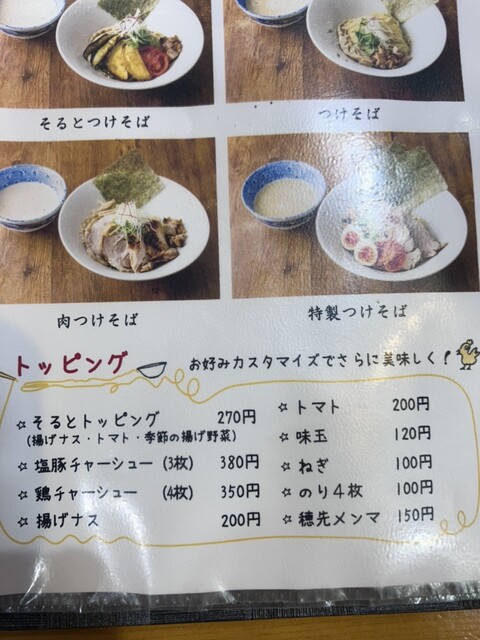 そるとつけそば
つけそば
肉つけそば
特製つけそば
トッピング
お好みカスタマイズでさらに美味しく!
☆ そるとトッピング 270円
(揚げナス・トマト・季節の揚げ野菜)
☆ 塩豚チャーシュー (3枚) 380円
☆ 鶏チャーシュー (4枚) 350円
☆ 揚げナス 200円
☆ トマト 200円
☆ 味玉 120円
☆ ねぎ 100円
☆ のり4枚 100円
☆ 穂先メンマ 150円